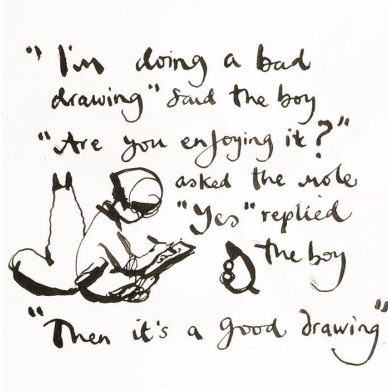 "I'm doing a bad
drawing" said the boy
"Are you enjoying it?"
asked the mole
"Yes" replied
the boy
"Then it's a good drawing"